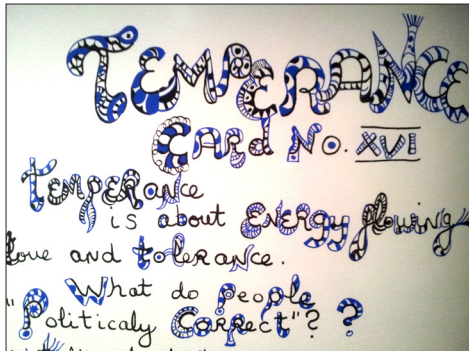 TEMPERANCE
CARD NO. XVI
Temperance
is about ENERGY flowing
love and toleRaNce.
What do People
"Politicaly CoRRect"? ?